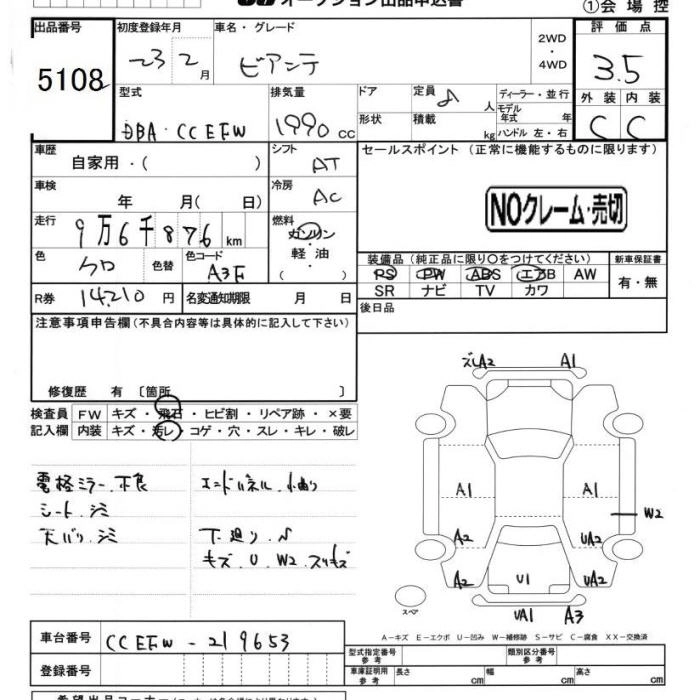 オークション出品申込書
①会場控
出品番号 初度登録年月 車名・グレード 評価点
5108 23 2月 ビアンテ 2WD・4WD 3.5
型式 排気量 ドア 定員 8人 ディーラー・並行 外装 内装
DBA・CCEFW 1990cc 形状 積載 kg モデル年式 年 ハンドル 左・右 C C
車歴 シフト セールスポイント (正常に機能するものに限ります)
自家用・( ) AT
車検 冷房
年 月( 日) AC NOクレーム・売切
走行 燃料
9万6千876km ガソリン・軽油・( )
色 色替 色コード 装備品(純正品に限り〇をつけてください) 新車保証書
クロ A3F PS PW ABS エアB AW 有・無
R券 14,210円 名変通知期限 月 日 SR ナビ TV カワ
注意事項申告欄(不具合内容等は具体的に記入して下さい) 後日品
修復歴 有 〔箇所 〕
検査員 FW キズ・飛石・ヒビ割・リペア跡・×要
記入欄 内装 キズ・汚レ・コゲ・穴・スレ・キレ・破レ
電格ミラー、不良 エンドパネル、曲り
シート、シミ
天バリ、シミ 下廻り、
キズ、U、W2、スリキズ
ズレA2 A1
A1 A1
W2
A2 UA2
A2 U1 UA2
スペア
UA1 A3
A−キズ E−エクボ U−凹み W−補修跡 S−サビ C−腐食 XX−交換済
車台番号 CCEFW-219653
型式指定番号 参考 類別区分番号 参考
登録番号 車庫証明用 参考 長さ cm 幅 cm 高さ cm